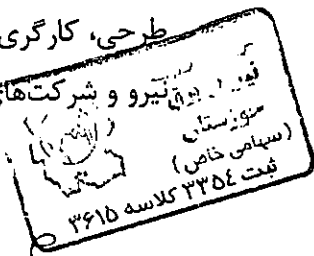 طرحی، کارگری
نیرو و شرکت‌های
خوزستان
(سهامی خاص)
ثبت ۳۳۵٤ کلاسه ۳۶۱۵